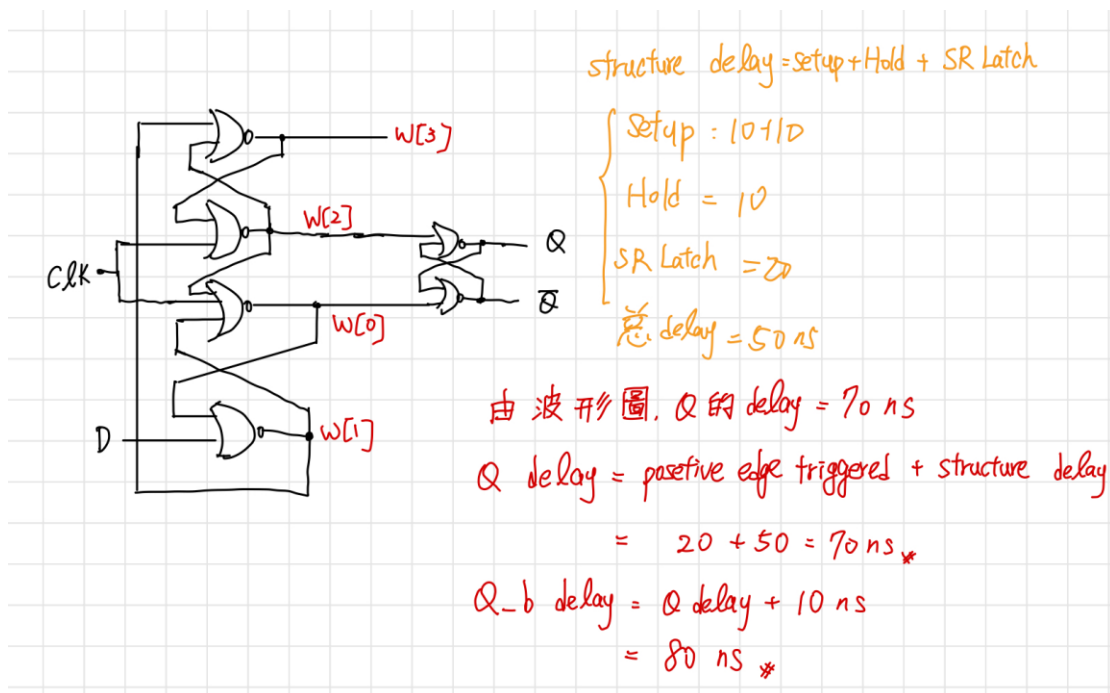 structure delay = setup + Hold + SR Latch
Setup : 10+10
Hold = 10
SR Latch = 20
总 delay = 50 ns
W[3]
W[2]
Q
CLK
W[0]
Q̅
D
W[1]
由波形圖, Q 的 delay = 70 ns
Q delay = posetive edge triggered + structure delay
= 20 + 50 = 70 ns *
Q_b delay = Q delay + 10 ns
= 80 ns *